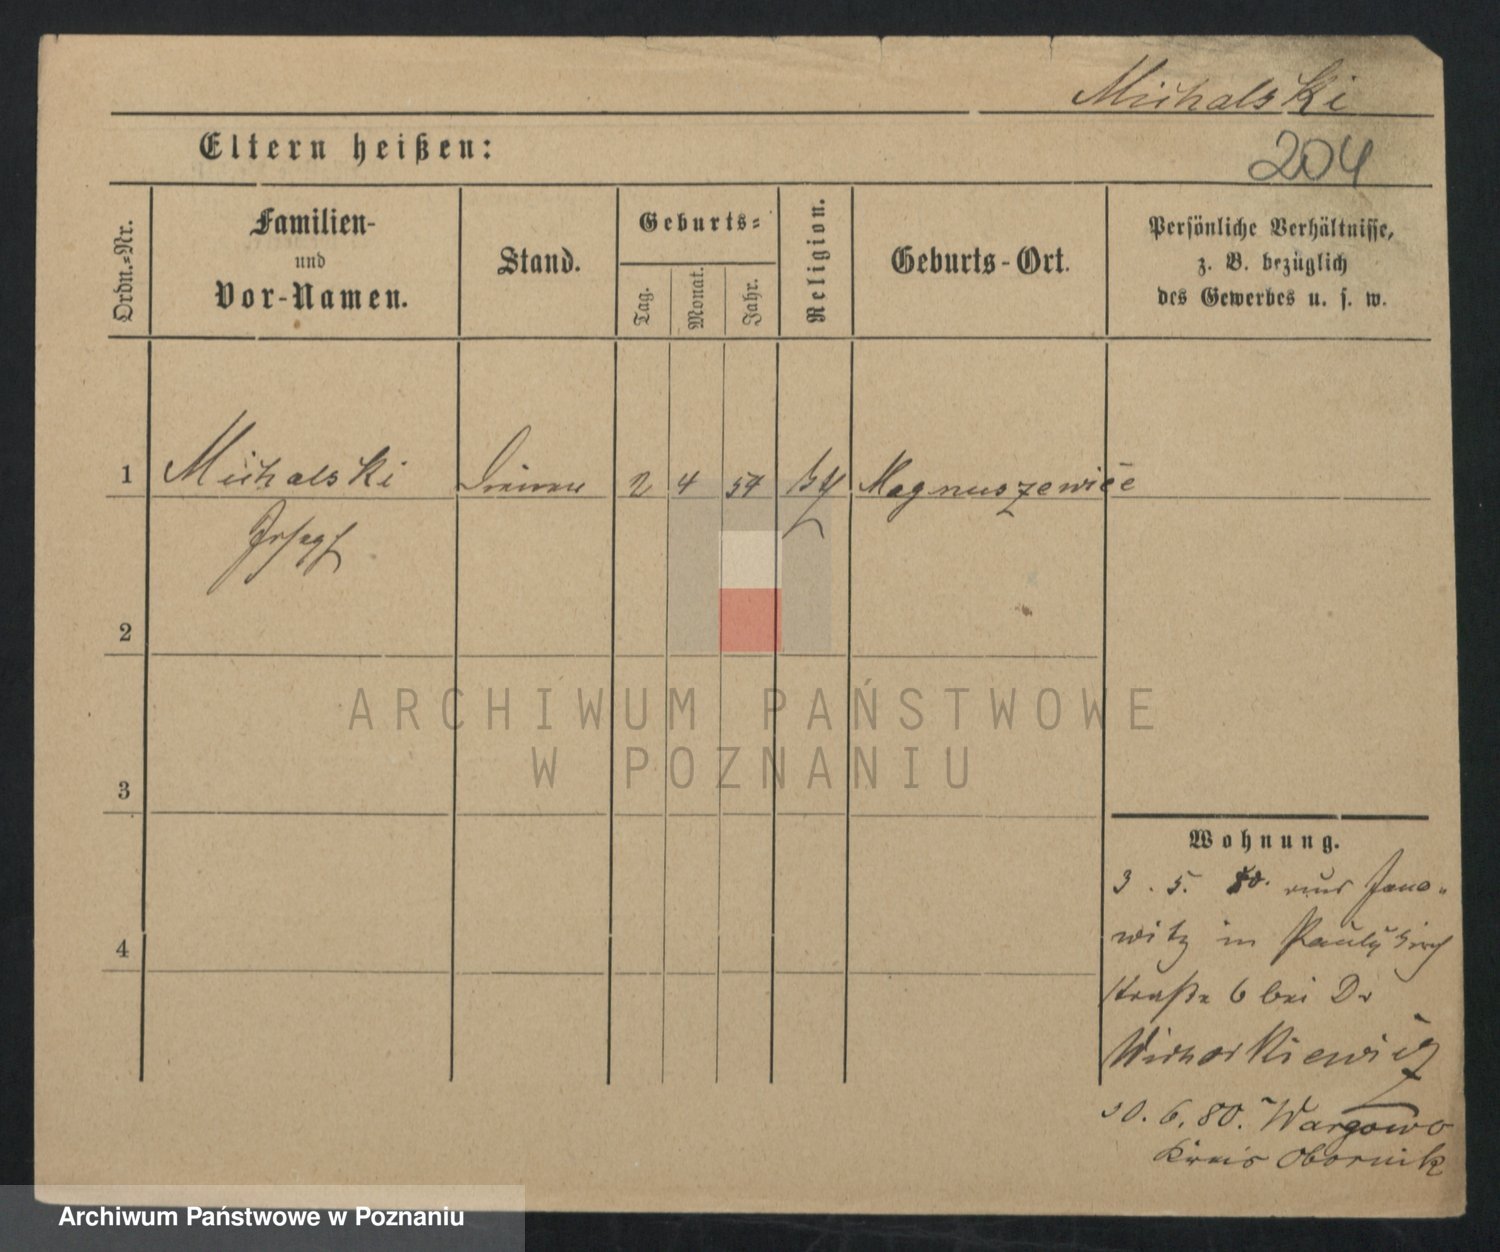 Michalski
204
Eltern heißen:
Ordn.-Nr.
Familien-
und
Vor-Namen.
Stand.
Geburts-
Tag.
Monat.
Jahr.
Religion.
Geburts-Ort.
Persönliche Verhältnisse,
z. B. bezüglich
des Gewerbes u. s. w.
1 Michalski 2 4 54 Magnuszewice
Joseph
2
ARCHIWUM PAŃSTWOWE
W POZNANIU
3
Wohnung.
3. 5. 80. aus Jano-
witz in Paulikirch
straße 6 bei Dr
4
30. 6. 80. Wargowo
Kreis Obornik
Archiwum Państwowe w Poznaniu